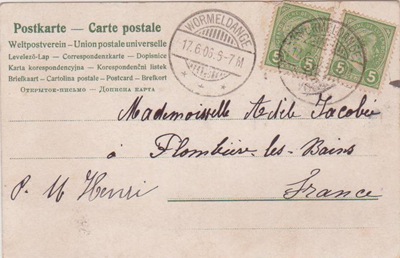 Postkarte – Carte postale
Weltpostverein – Union postale universelle
Levelező-Lap – Correspondenzkarte – Dopisnice
Karta korespondencyjna – Korespondenční lístek
Briefkaart – Cartolina postale – Postcard – Brefkort
Открытое письмо – Дописна карта
WORMELDANGE
17.6.06.6-7M
5 5
5 5
Mademoiselle Adèle Jacobée
à Plombière-les-Bains
P. M Henri
France